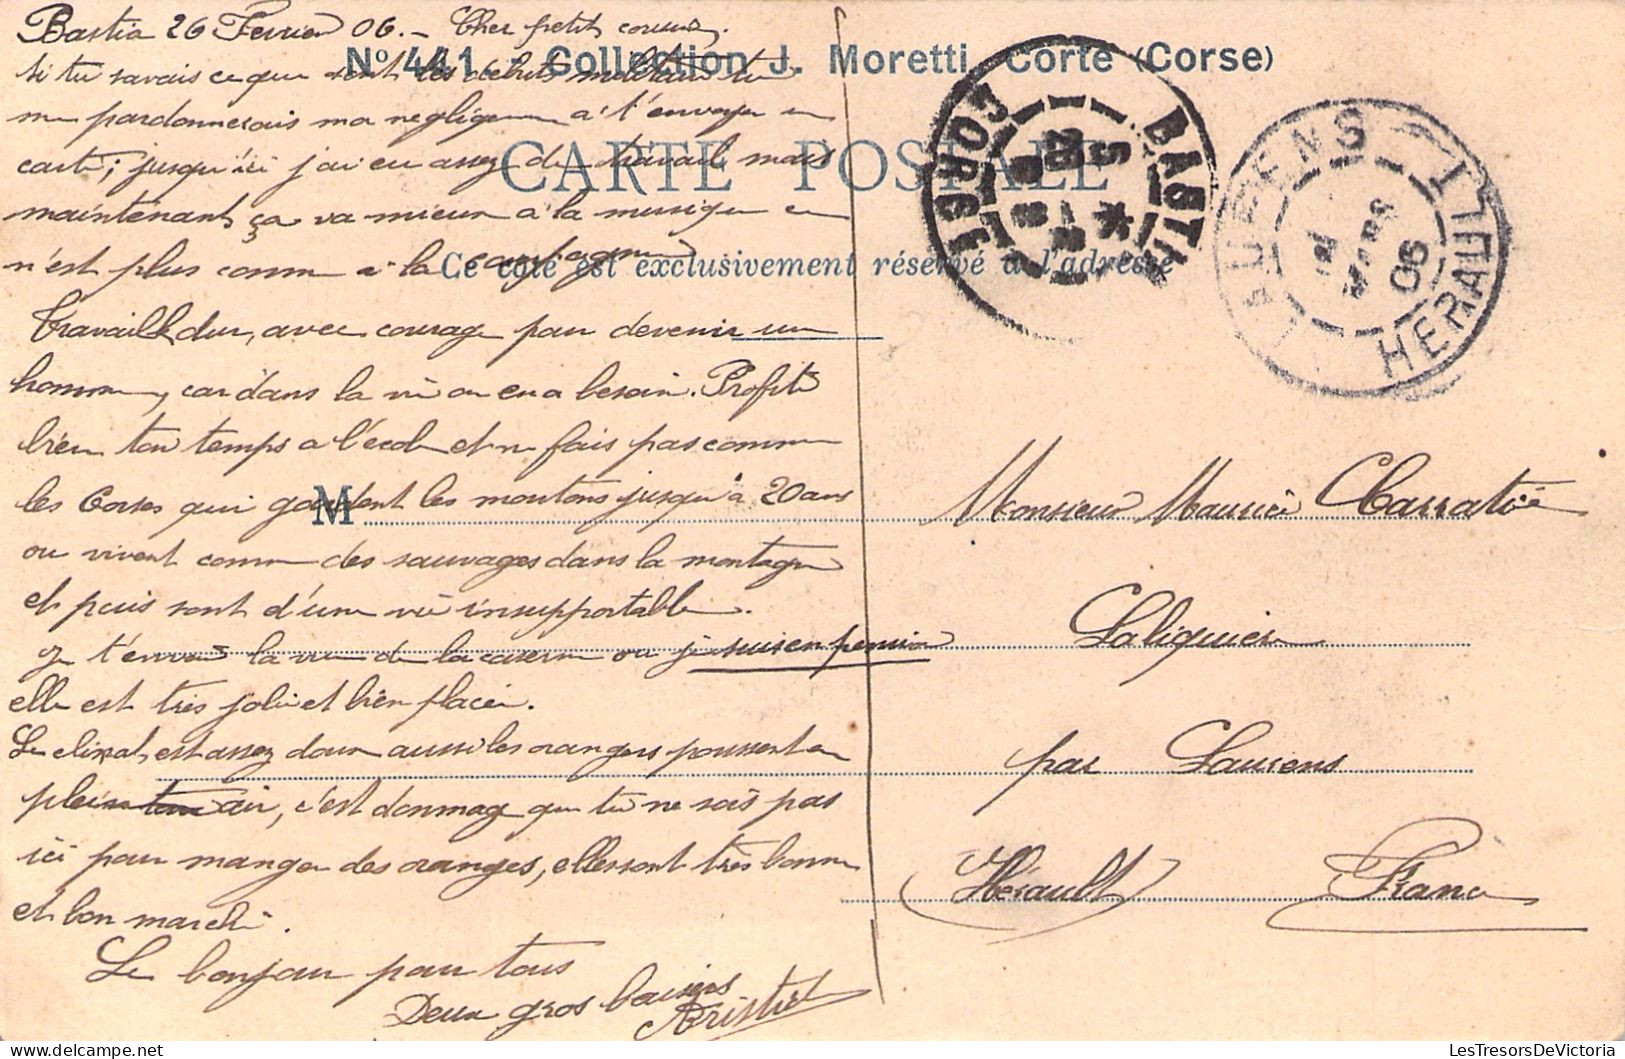 Bastia 26 Fevrier 06. – Cher petit cousin,
si tu savais ce que sont les débuts militaires tu
me pardonnerais ma négligence à t'envoyer une
carte; jusqu'ici j'ai eu assez de travail mais
maintenant ça va mieux à la musique on
n'est plus comme à la campagne
Travaille dur, avec courage pour devenir un
homme, car dans la vie on en a besoin. Profite
bien ton temps a l'école et ne fais pas comme
les Corses qui gardent les moutons jusqu'à 20 ans
ou vivent comme des sauvages dans la montagne
et puis sont d'une vie insupportable.
Je t'envoie la vue de la caserne ou je suis en pension
elle est très jolie et bien placée.
Le climat est assez doux aussi les orangers poussent en
plein air, c'est dommage que tu ne sois pas
ici pour manger des oranges, elles sont très bonne
et bon marché.
Le bonjour pour tous
Deux gros baisers
Aristide
No 441 - Collection J. Moretti, Corte (Corse)
CARTE POSTALE
Ce côté est exclusivement réservé à l'adresse
BASTIA
CORSE
LAURENS
HERAULT
06
M
Monsieur Maurice
Laliquière
par Laurens
Hérault France
LesTresorsDeVictoria